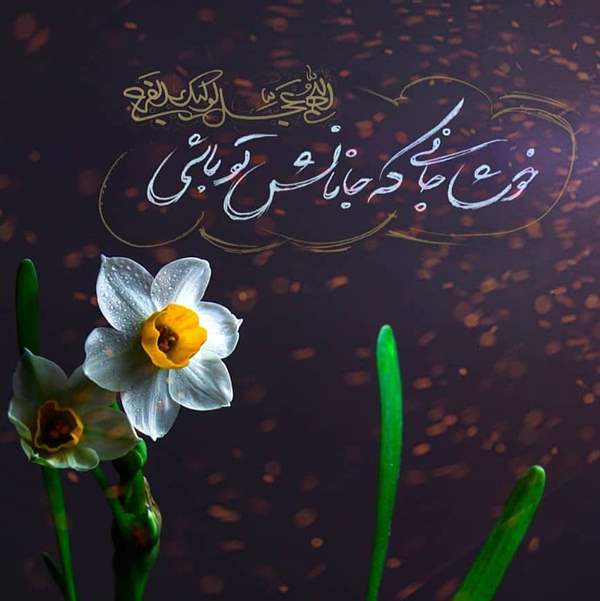 اللهم عجل لولیک الفرج
خوشا جانی که جانانش تو باشی